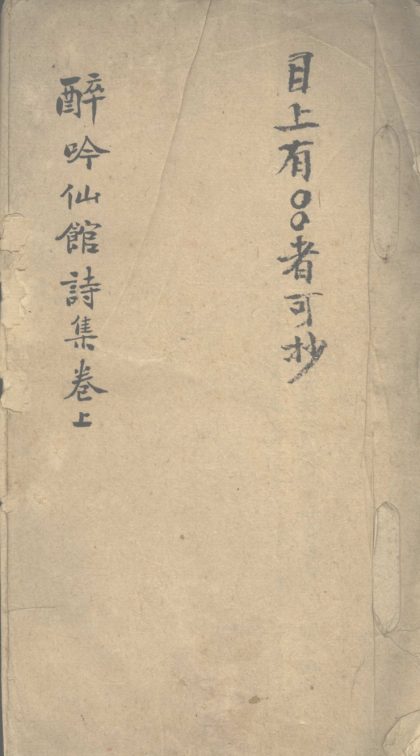 目上有〇〇者可抄
醉吟仙館詩集卷上